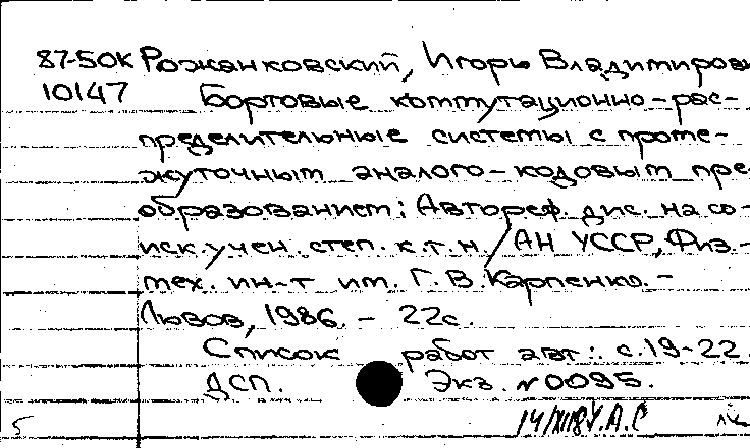 87-50К Рожанковский, Игорь Владимирови
10147 Бортовые коммутационно-рас-
пределительные системы с проме-
жуточным аналого-кодовым пре
образованием: Автореф. дис. на со-
иск. учен. степ. к.т.н. / АН УССР, Физ.-
мех. ин-т им. Г.В. Карпенко. -
Львов, 1986. - 22с.
Список работ авт.: с.19-22
ДСП. Экз. №0095.
5